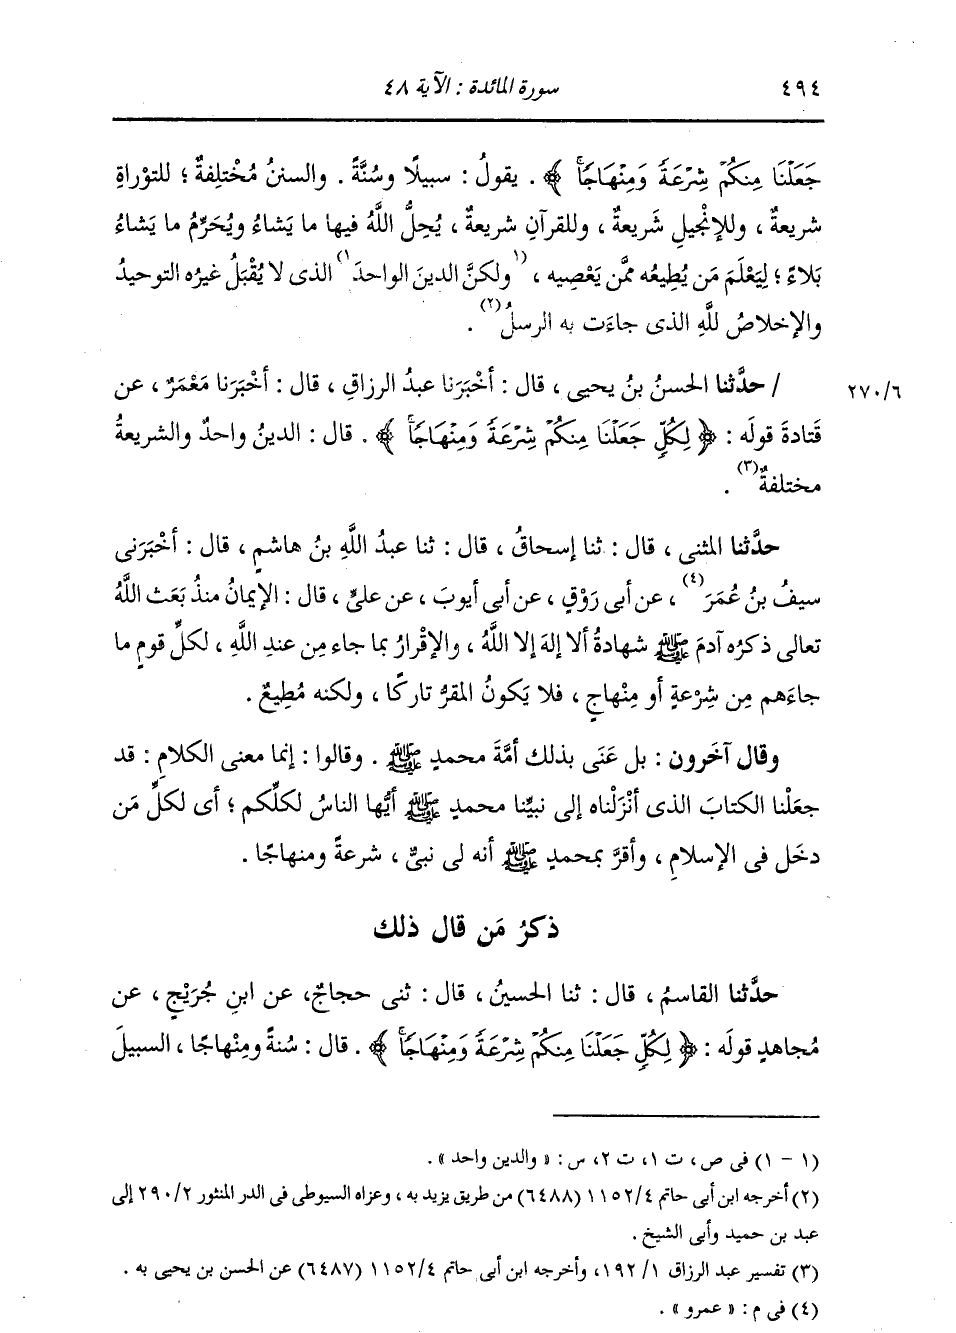 ٤٩٤ سورة المائدة : الآية ٤٨
جَعَلْنَا مِنكُمْ شِرْعَةً وَمِنْهَاجًا ﴾ . يقولُ : سبيلًا وسُنَّةً . والسننُ مُخْتلِفةٌ ؛ للتوْراةِ
شريعةٌ ، وللإنْجيلِ شَريعةٌ ، وللقرآنِ شريعةٌ ، يُحِلُّ اللَّهُ فيها ما يَشاءُ ويُحَرِّمُ ما يَشاءُ
بَلاءً ؛ لِيَعْلَمَ مَن يُطِيعُه ممَّن يَعْصِيه ، (١ولكنَّ الدينَ الواحدَ١) الذى لا يُقْبَلُ غيرُه التوحيدُ
والإخلاصُ للَّهِ الذى جاءَت به الرسلُ(٢) .
/ حدَّثنا الحسنُ بنُ يحيى ، قال : أخْبَرَنا عبدُ الرزاقِ ، قال : أخْبَرَنا مَعْمَرٌ ، عن ٢٧٠/٦
قَتادةَ قولَه : ﴿ لِكُلٍّ جَعَلْنَا مِنكُمْ شِرْعَةً وَمِنْهَاجًا ﴾ . قال : الدينُ واحدٌ والشريعةُ
مختلفةٌ(٣) .
حدَّثنا المثنى ، قال : ثنا إسحاقُ ، قال : ثنا عبدُ اللَّهِ بنُ هاشمٍ ، قال : أخْبَرَنى
سيفُ بنُ عُمَرَ(٤) ، عن أبى رَوْقٍ ، عن أبى أيوبَ ، عن علىٍّ ، قال : الإيمانُ منذُ بَعَث اللَّهُ
تعالى ذكرُه آدمَ ﷺ شهادةُ ألا إلهَ إلا اللَّهُ ، والإقْرارُ بما جاء مِن عندِ اللَّهِ ، لكلِّ قومٍ ما
جاءَهم مِن شِرْعةٍ أو مِنْهاجٍ ، فلا يَكونُ المقرُّ تاركًا ، ولكنه مُطِيعٌ .
وقال آخَرون : بل عَنَى بذلك أمَّةَ محمدٍ ﷺ . وقالوا : إنما معنى الكلامِ : قد
جعَلْنا الكتابَ الذى أنْزَلْناه إلى نبيِّنا محمدٍ ﷺ أيُّها الناسُ لكلِّكم ؛ أى لكلِّ مَن
دخَل فى الإسلامِ ، وأقرَّ بمحمدٍ ﷺ أنه لى نبىٌّ ، شرعةً ومنهاجًا .
ذكرُ مَن قال ذلك
حدَّثنا القاسمُ ، قال : ثنا الحسينُ ، قال : ثنى حجاجٌ، عن ابنِ جُرَيْجٍ ، عن
مُجاهدٍ قولَه : ﴿ لِكُلٍّ جَعَلْنَا مِنكُمْ شِرْعَةً وَمِنْهَاجًا ﴾ . قال : سُنةً ومِنْهاجًا ، السبيلَ
(١ - ١) فى ص، ت ١، ت ٢، س : « والدين واحد » .
(٢) أخرجه ابن أبى حاتم ١١٥٢/٤ (٦٤٨٨) من طريق يزيد به ، وعزاه السيوطى فى الدر المنثور ٢٩٠/٢ إلى
عبد بن حميد وأبى الشيخ .
(٣) تفسير عبد الرزاق ١/ ١٩٢، وأخرجه ابن أبى حاتم ١١٥٢/٤ (٦٤٨٧) عن الحسن بن يحيى به .
(٤) فى م : « عمرو » .